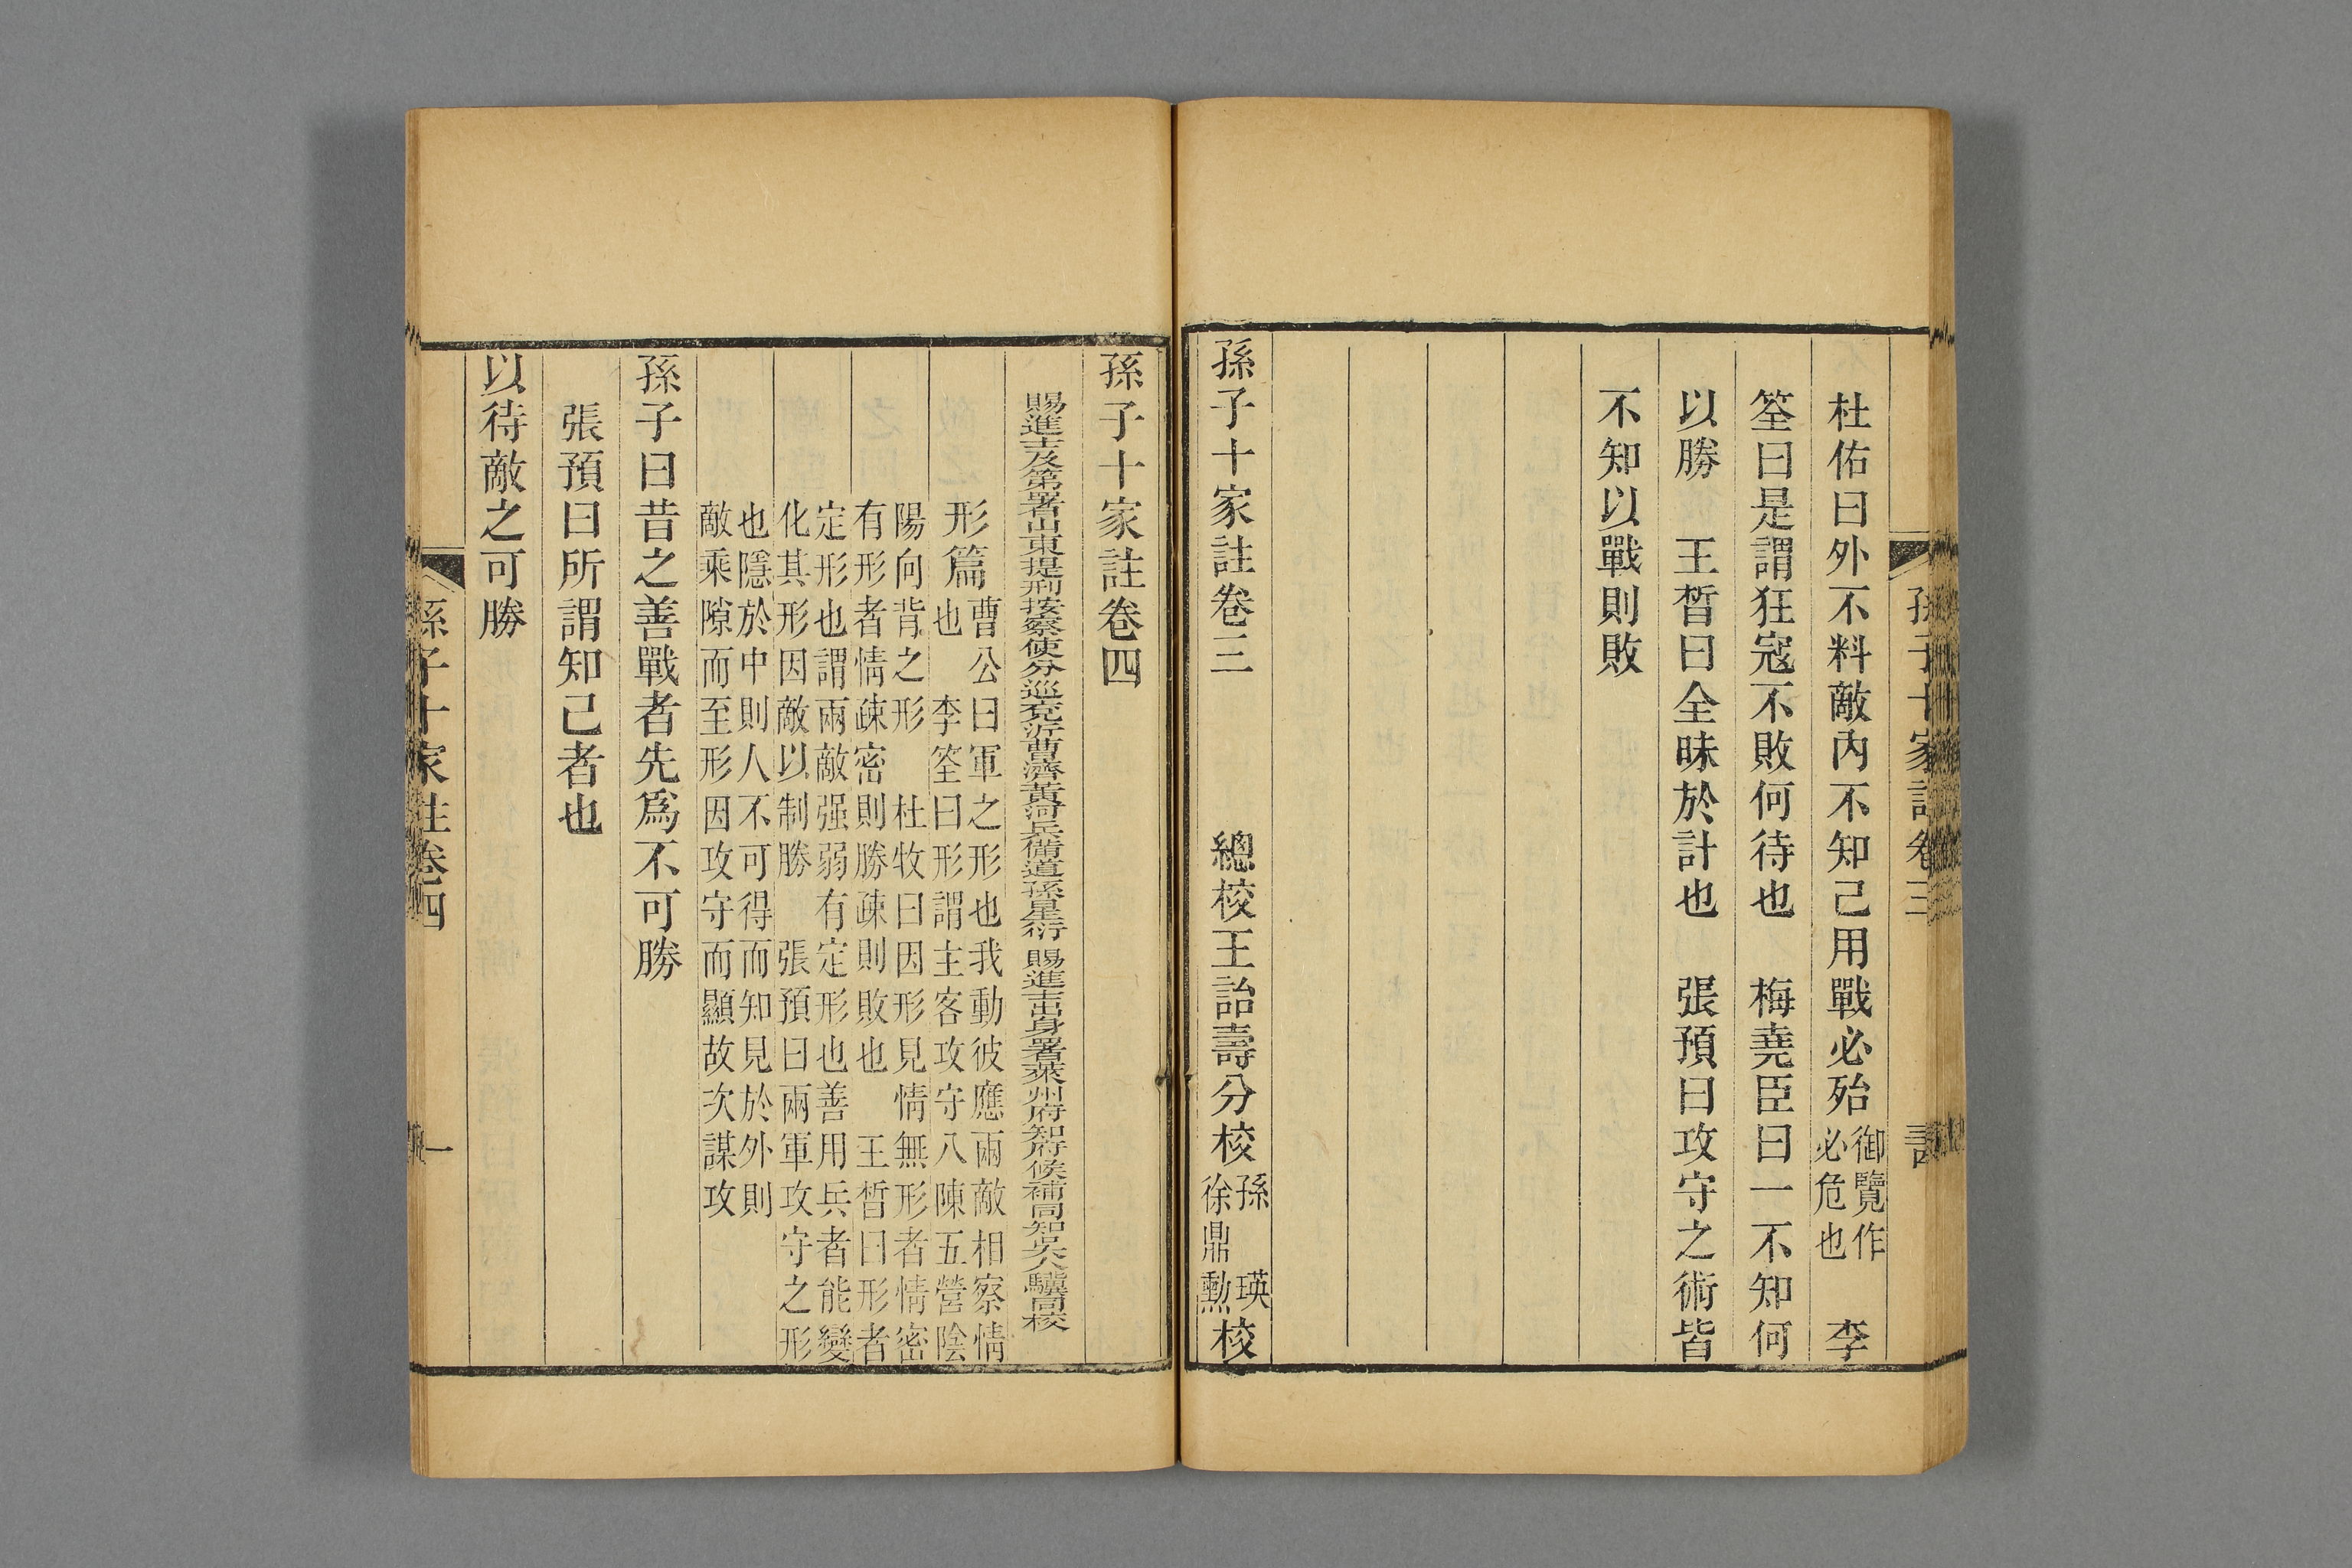 孫子十家註卷三
杜佑曰外不料敵內不知己用戰必殆御覽作必危也　李
筌曰是謂狂寇不敗何待也　梅堯臣曰一不知何
以勝　王晳曰全昧於計也　張預曰攻守之術皆
不知以戰則敗
孫子十家註卷三　總校王詒壽分校孫瑛徐鼎勳校
孫子十家註卷四
賜進士及第署山東提刑按察使分巡兗沂曹濟黃河兵備道孫星衍　賜進士出身署萊州府知府候補同知吳人驥同校
形篇曹公曰軍之形也我動彼應兩敵相察情
也　李筌曰形謂主客攻守八陳五營陰
陽向背之形　杜牧曰因形見情無形者情密
有形者情疎密則勝疎則敗也　王晳曰形者
定形也謂兩敵强弱有定形也善用兵者能變
化其形因敵以制勝　張預曰兩軍攻守之形
也隱於中則人不可得而知見於外則
敵乘隙而至形因攻守而顯故次謀攻
孫子曰昔之善戰者先爲不可勝
張預曰所謂知己者也
以待敵之可勝
孫子十家註卷四　一